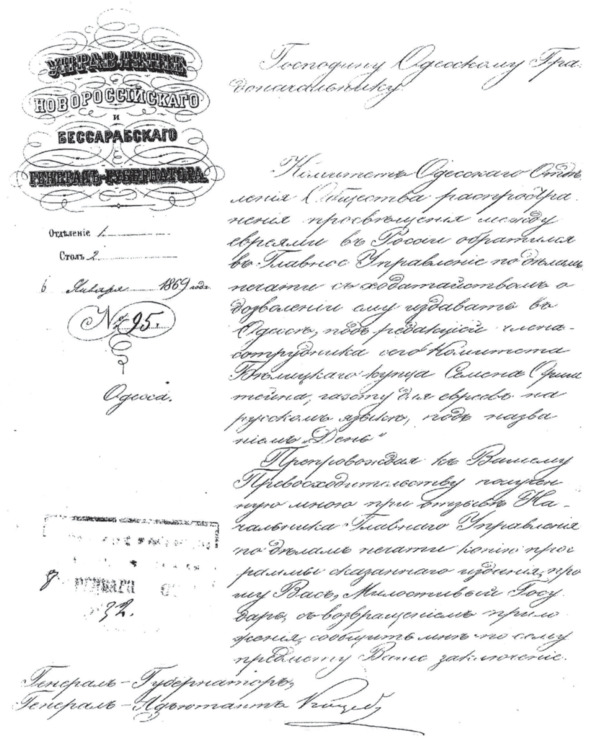 УПРАВЛЕНІЕ
НОВОРОССІЙСКАГО
И
БЕССАРАБСКАГО
ГЕНЕРАЛЪ-ГУБЕРНАТОРА.
Отдѣленіе 1.
Столъ 2.
6 Января 1869 года
№ 95.
Одесса.
Господину Одесскому Гра
доначальнику
Комитетъ Одесскаго Отдѣ
ленія Общества распростра
ненія просвѣщенія между
евреями въ Россіи обратился
въ Главное Управленіе по дѣламъ
печати съ ходатайствомъ о
дозволеніи ему издавать въ
Одессѣ, подъ редакціей члена-
сотрудника сего Комитета
купца Семена Орнш
тейна, газету для евреевъ на
русскомъ языкѣ, подъ назва
ніемъ „День“
Препровождая къ Вашему
Превосходительству получен
ную мною при отзывѣ На-
чальника Главнаго Управленія
по дѣламъ печати копію прог
раммы сказаннаго изданія, про
шу Васъ, Милостивый Госу
дарь, съ возвращеніемъ прило
женія, сообщить мнѣ по сему
предмету Ваше заключеніе.
8 ЯНВАРЯ
32.
Генералъ-Губернаторъ,
Генералъ-Адъютантъ Коцебу